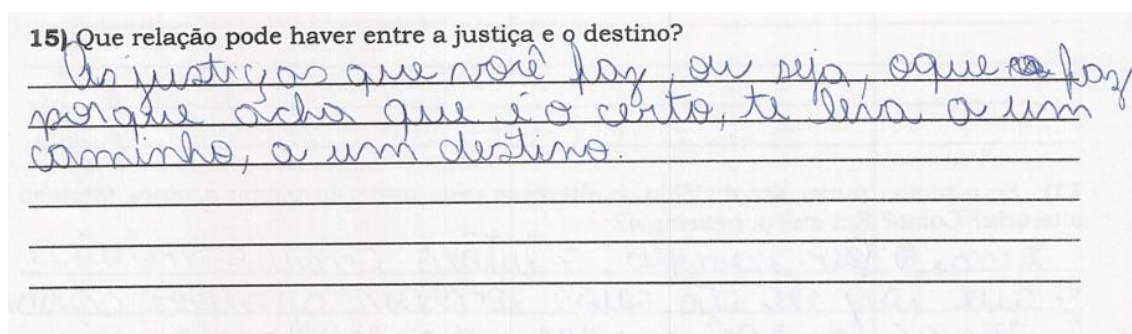 15) Que relação pode haver entre a justiça e o destino?
As justiças que você faz ou seja, oque faz
porque acha que é o certo, te leva a um
caminho, a um destino.